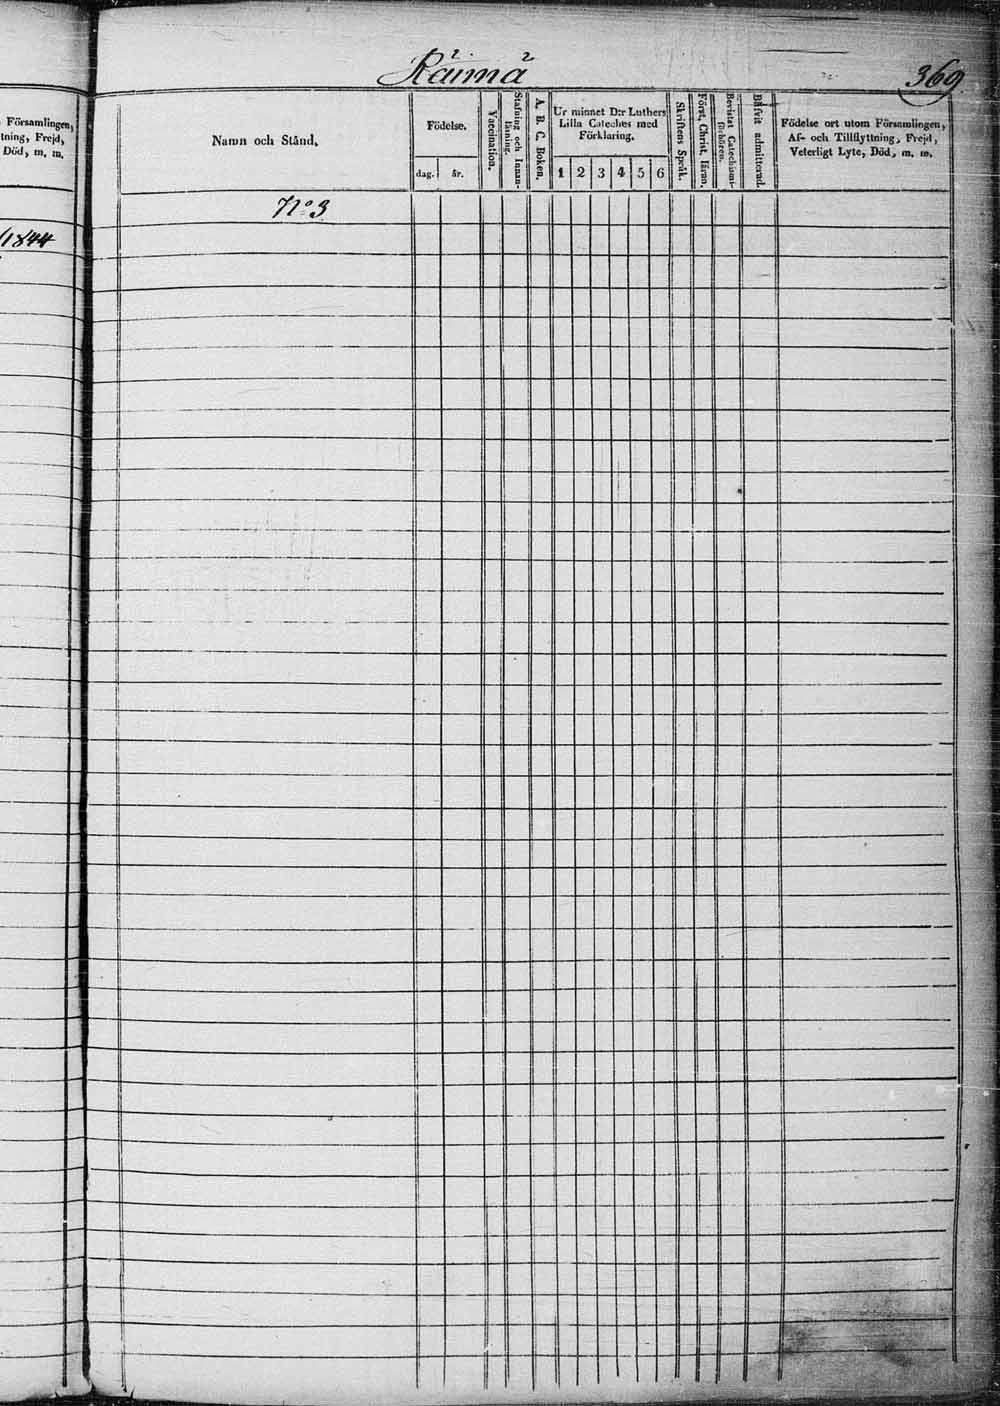 Räimä
369
Församlingen,
tning, Frejd,
Död, m. m.
1844
Namn och Stånd.
Födelse.
dag.
år.
Vaccination.
Stafning och Innan-
läsning.
A. B. C. Boken.
Ur minnet D:r Luthers
Lilla Cateches med
Förklaring.
1 2 3 4 5 6
Skriftens Språk.
Först. Christ. läran.
Bevistat Catechismi-
förhören.
Blifvit admitterad.
Födelse ort utom Församlingen,
Af- och Tillflyttning, Frejd,
Veterligt Lyte, Död, m. m.
N:o 3